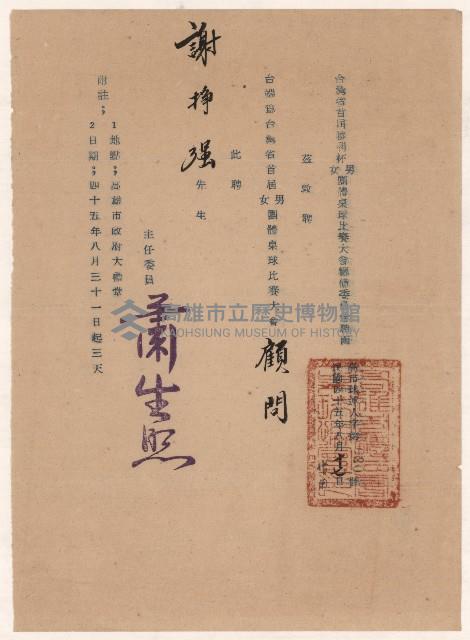 台灣省首屆勝利杯男女團體桌球比賽大會籌備委員會聘函
茲敦聘
台端為台灣省首屆男女團體桌球比賽大會顧問
此聘
謝掙强先生
主任委員
蕭生煕
附註；
1地點；高雄市政府大禮堂
2日期；四十五年八月三十一日起三天
高雄市立歷史博物館
KAOHSIUNG MUSEUM OF HISTORY